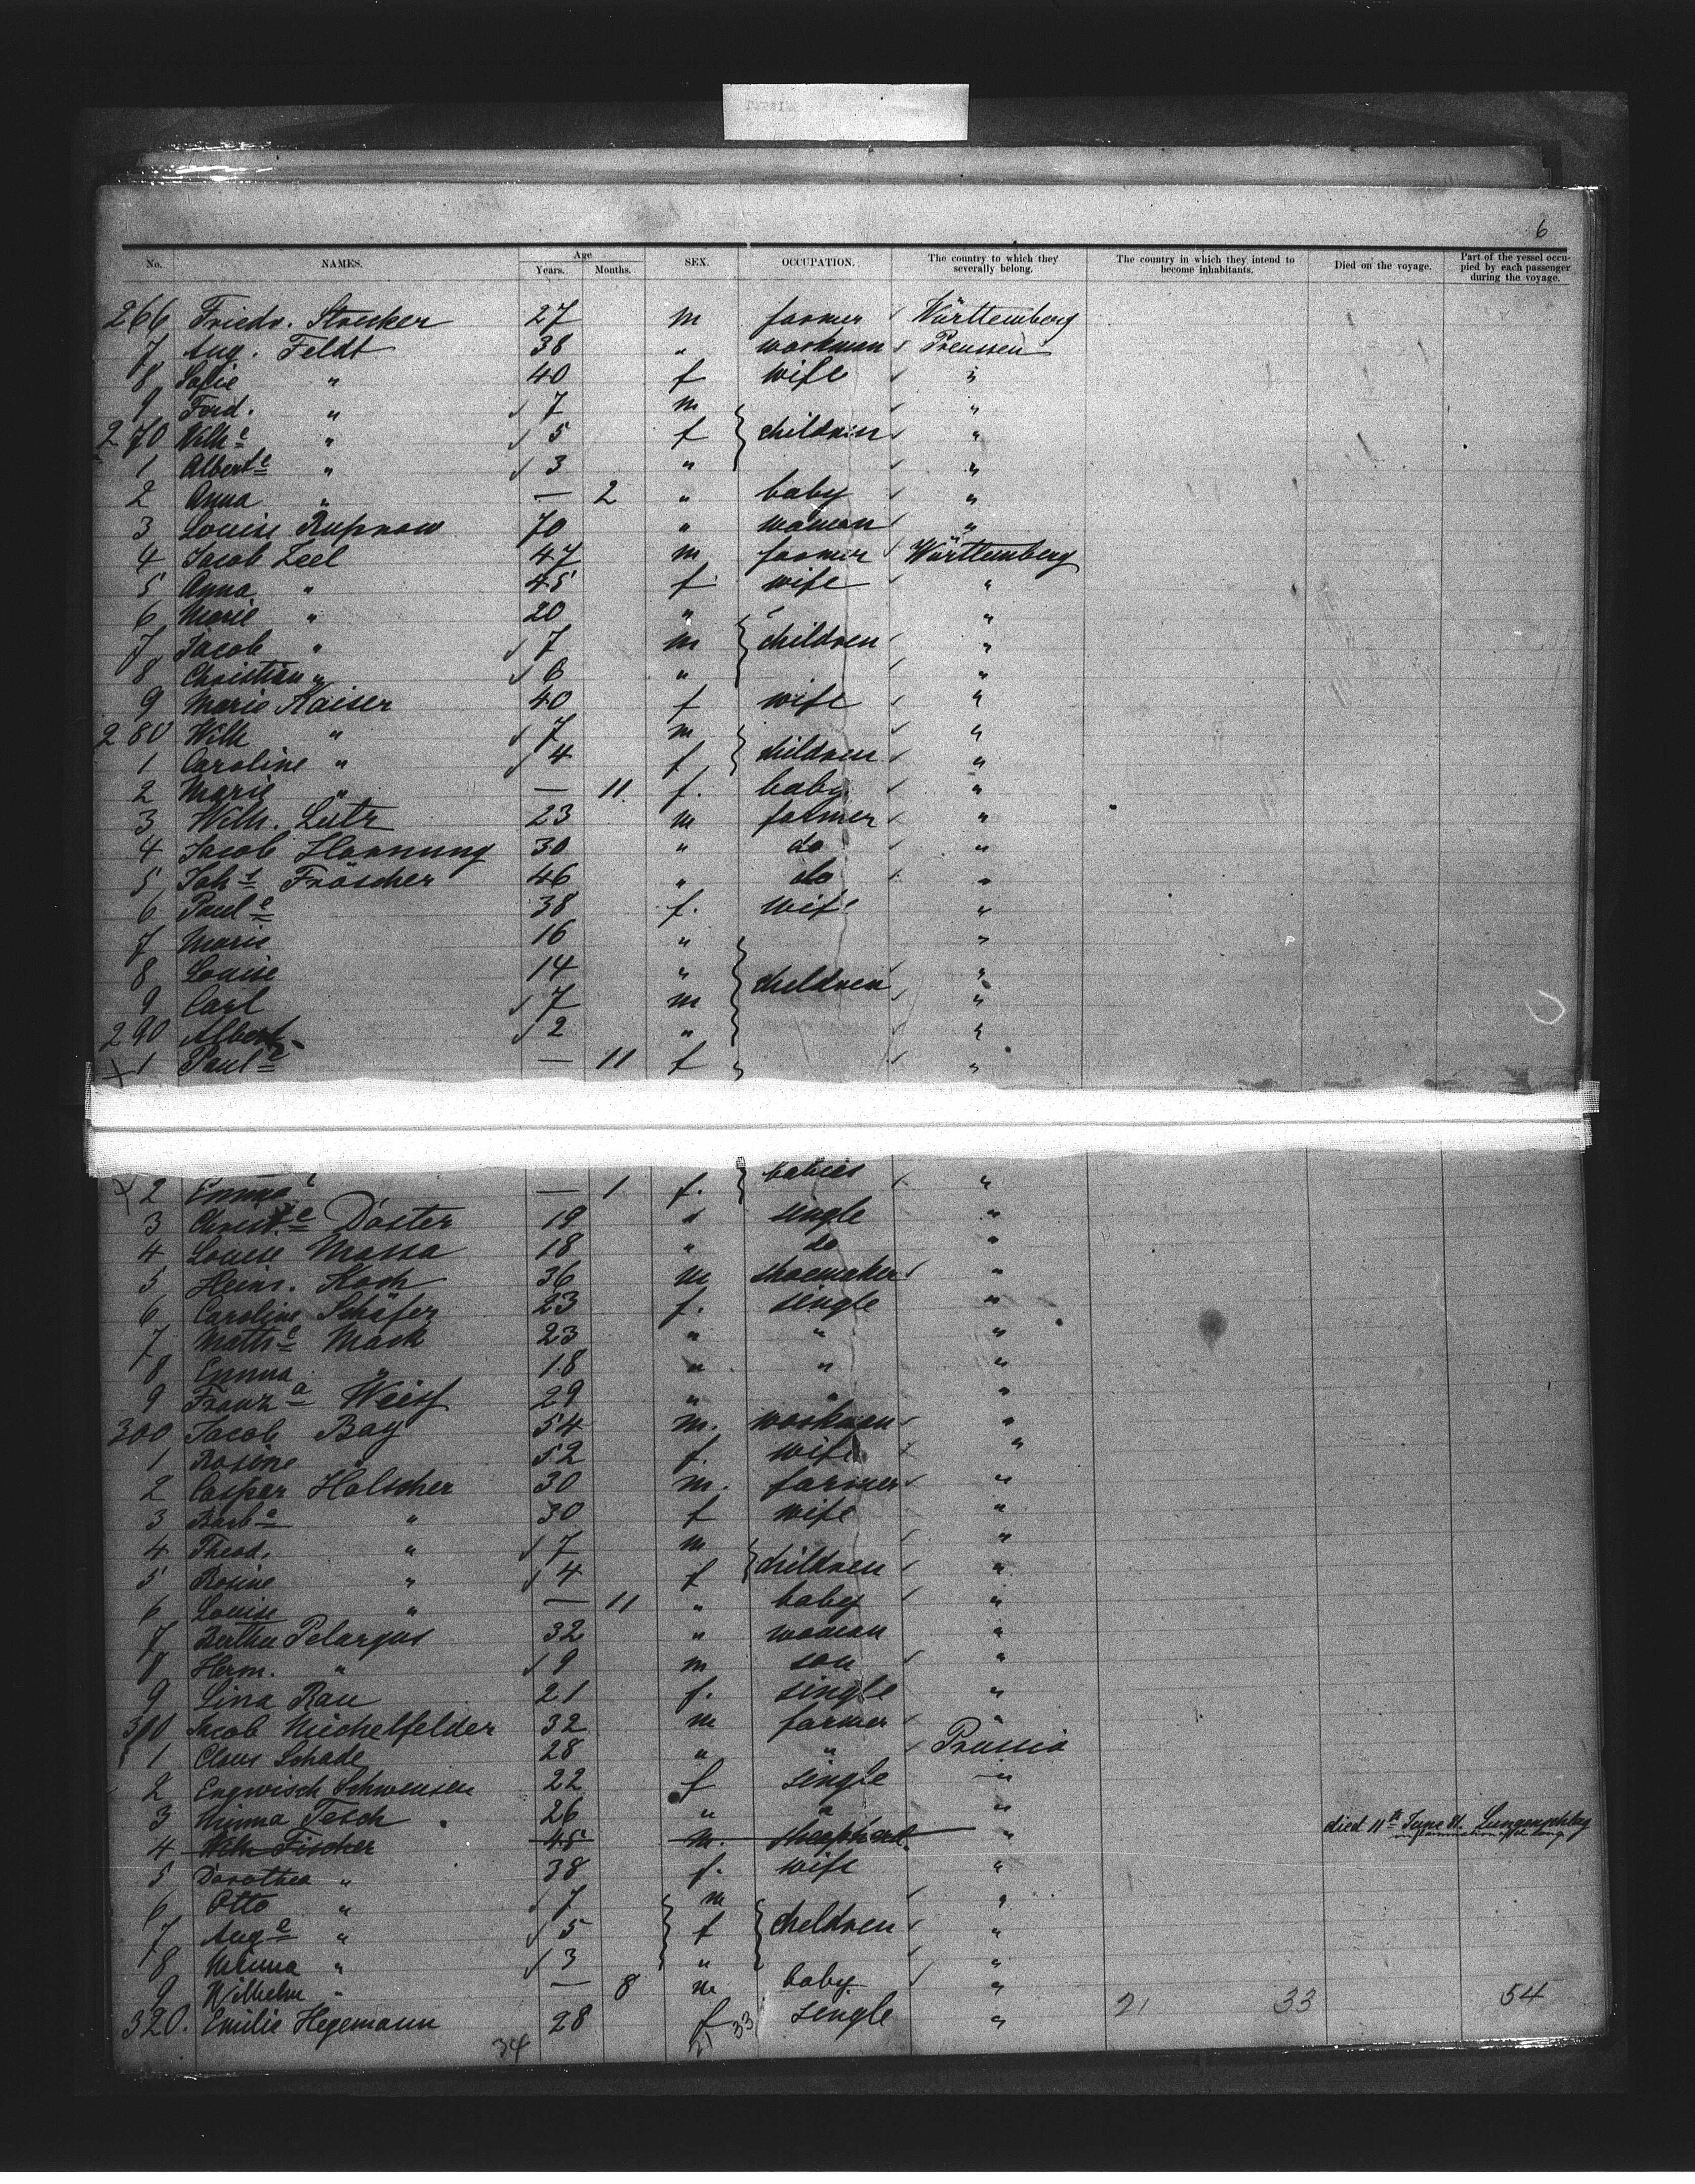 6
No. NAMES. Age Years. Months. SEX. OCCUPATION. The country to which they severally belong. The country in which they intend to become inhabitants. Died on the voyage. Part of the vessel occupied by each passenger during the voyage.
266 Friedr. Strecker 27 m farmer Württemberg
7 Aug. Feldt 38 " workman Preussen
8 Sofie " 40 f wife "
9 Ferd. " 7 m "
270 Wilh.e " 5 f children "
1 Albert.e " 3 " "
2 Anna " — 2 " baby "
3 Louise Rupnow 70 " woman "
4 Jacob Zeel 47 m farmer Württemberg
5 Anna " 45 f wife "
6 Marie " 20 " "
7 Jacob " 7 m children "
8 Christian " 6 " "
9 Marie Kaiser 40 f wife "
280 Wilh " 7 m "
1 Caroline " 4 f children "
2 Marie " — 11 f. baby "
3 Wilh. Lutz 23 m farmer "
4 Jacob Hornung 30 " do "
5 Joh.s Fröscher 46 " do "
6 Paul.e 38 f. wife "
7 Marie 16 " "
8 Louise 14 " children "
9 Carl 7 m "
290 Albert 2 " "
1 Paul.e — 11 f "
2 Emma — 1 f. babies "
3 Christ.e Döster 19 " single "
4 Louise Massa 18 " do "
5 Heinr. Koch 36 m shoemaker "
6 Caroline Schäfer 23 f. single "
7 Math.e Mack 23 " " "
8 Emma " 18 " " "
9 Franz.a Weist 29 " " "
300 Jacob Bay 54 m. workman "
1 Rosine " 52 f. wife "
2 Caspar Holscher 30 m. farmer "
3 Barb.a " 30 f wife "
4 Theod. " 7 m "
5 Rosine " 4 f children "
6 Louise " — 11 " baby "
7 Bertha Pelargus 32 " woman "
8 Herm. " 9 m son "
9 Lina Rau 21 f. single "
310 Jacob Michelfelder 32 m farmer "
1 Claus Schade 28 " " Prussia
2 Engwisch Schwensen 22 f single "
3 Minna Tesch 26 " " "
4 Wilh Fischer 45 m. shepherd " died 11th June 81.
5 Dorothea " 38 f. wife "
6 Otto " 7 m "
7 Aug.e " 5 f children "
8 Minna " 3 " "
9 Wilhelm " — 8 m baby "
320. Emilie Hegemann 28 f single " 21 33 54
34 21 33